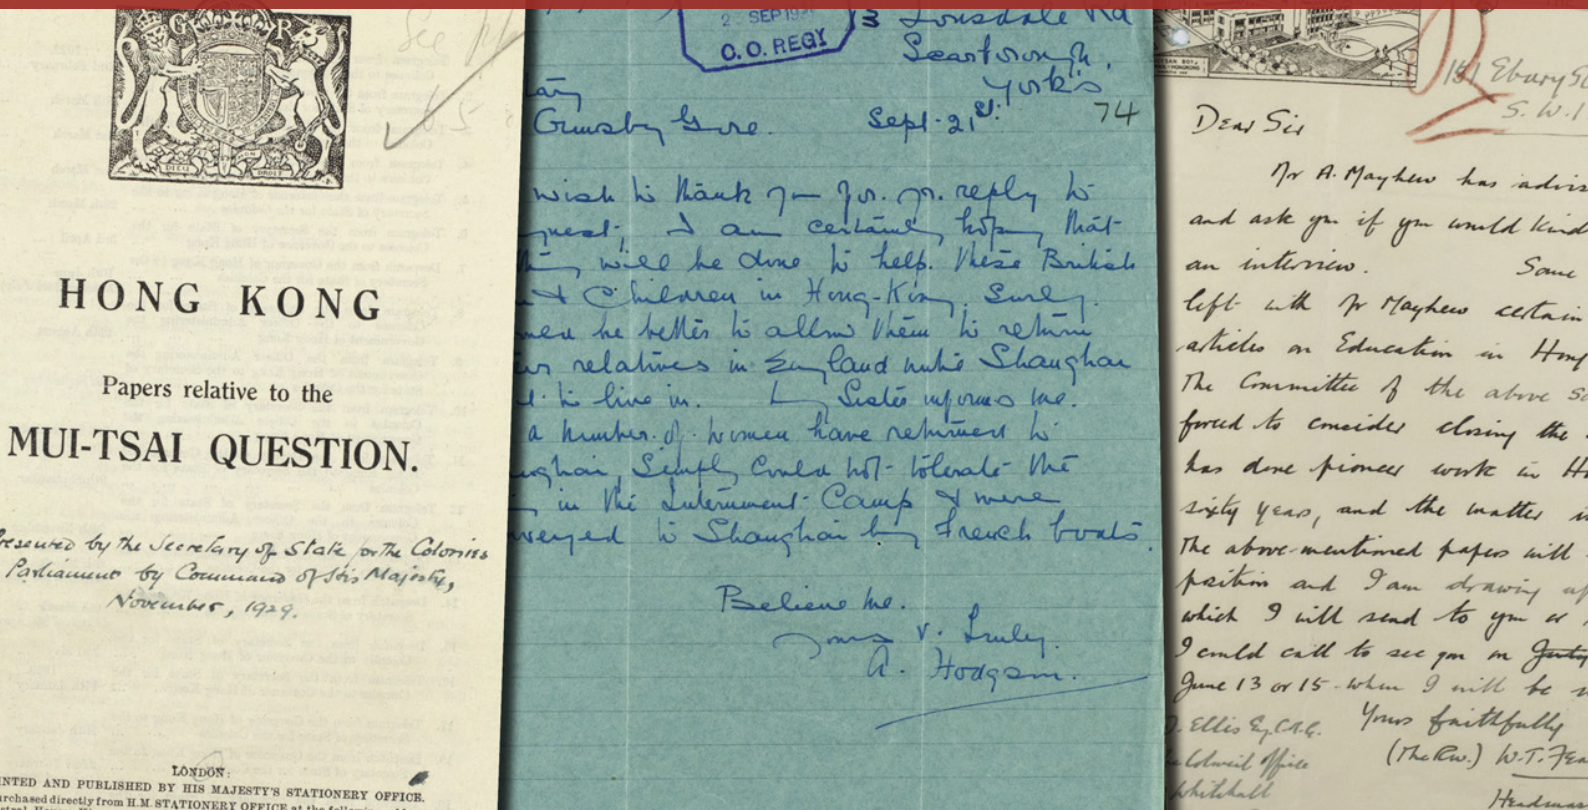 G R
See
HONG KONG
Papers relative to the
MUI-TSAI QUESTION.
resented by the Secretary of State for the Colonies
Parliament by Command of His Majesty,
November, 1929.
LONDON:
NTED AND PUBLISHED BY HIS MAJESTY'S STATIONERY OFFICE.
rchased directly from H.M. STATIONERY OFFICE at the following
SEP 19
C. O. REGY
3 Lonsdale Rd
Scarborough,
York's
74
Ormsby Gore. Sept. 21st.
wish to thank you for yr. reply to
quest, I am certainly hoping that
thing will be done to help these British
& Children in Hong-Kong. Surely
be better to allow them to return
relatives in England until Shanghai
to live in. My Sister informs me.
a number of women have returned to
nghai, Simply could not tolerate the
in the Internment Camp & were
nveyed to Shanghai by French boats.
Believe me.
Yours v. Truly.
A. Hodgson.
151 Ebury St
S.W.1
Dear Sir
Mr A. Mayhew has advis
and ask you if you would kind
an interview. Some
left with Mr Mayhew certain
articles on Education in Hong
The Committee of the above Sc
forced to consider closing the
has done pioneer work in H
sixty years, and the matter i
The above-mentioned papers will
position and I am drawing up
which I will send to you or
I could call to see you on
June 13 or 15 when I will be
Yours faithfully
(The Rev.) W.T. Fea
Headmas
. Ellis Esq. C.M.G.
Colonial Office
Whitehall